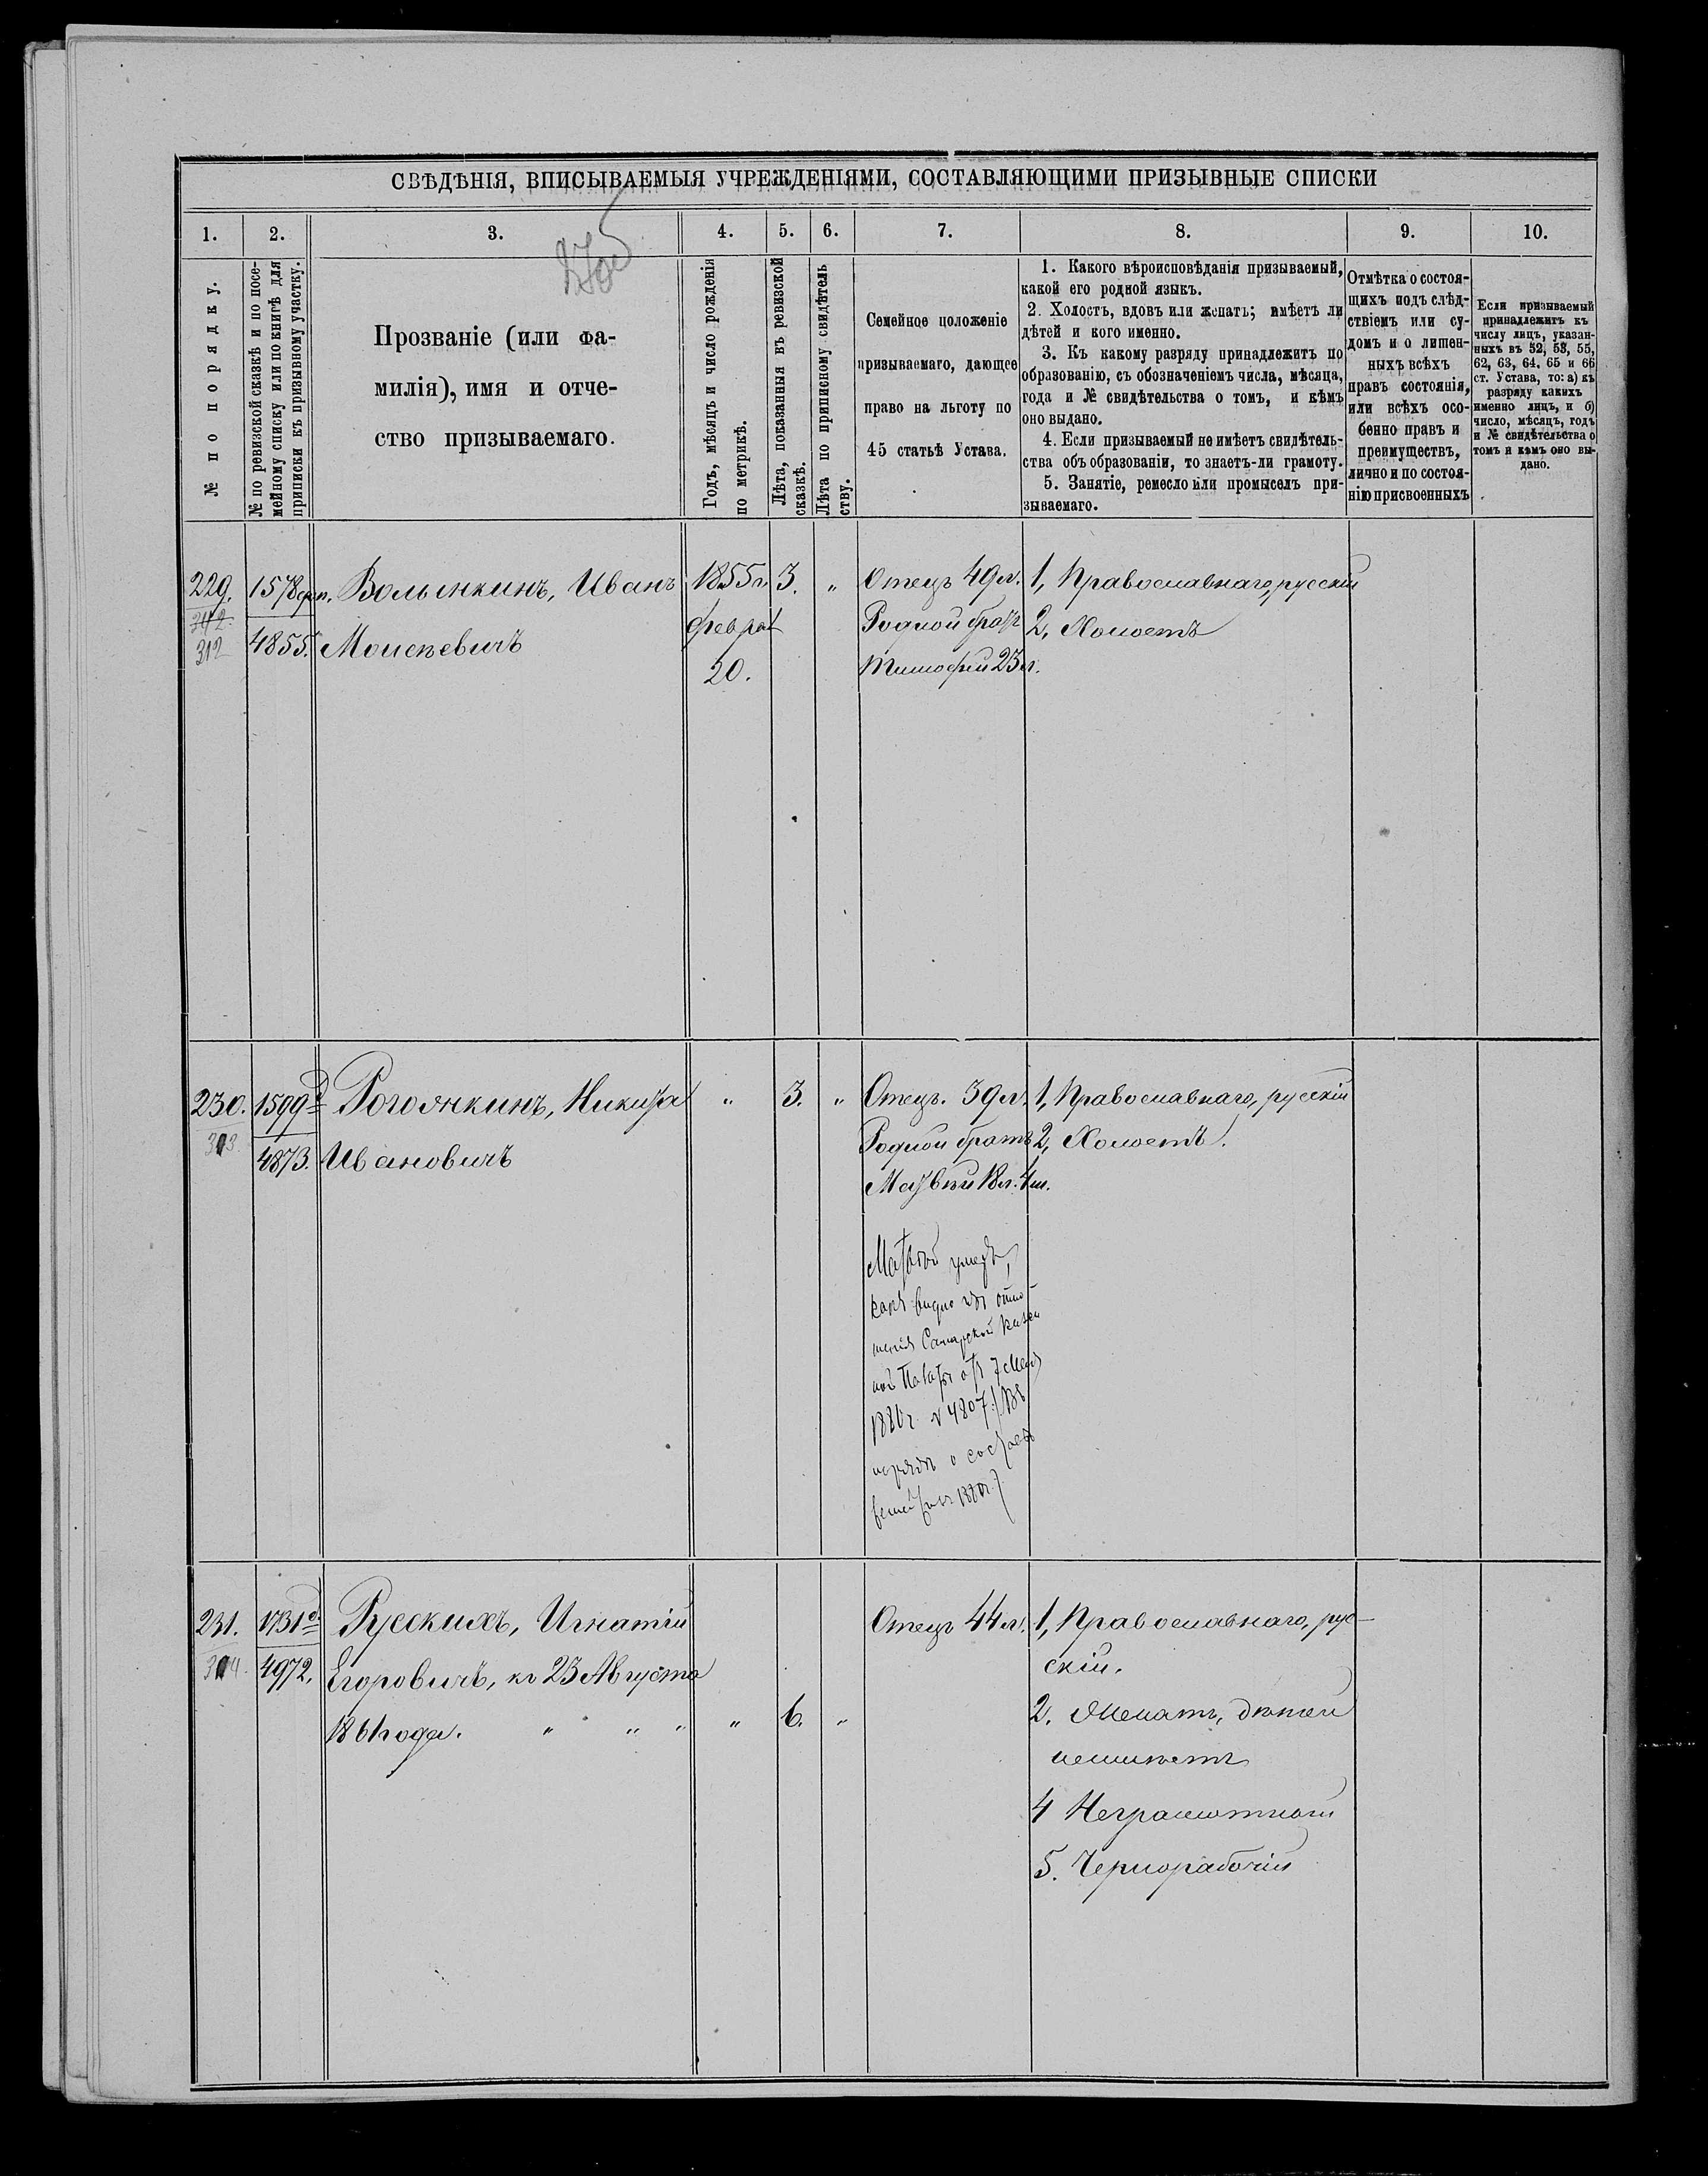 СВѢДѢНІЯ, ВПИСЫВАЕМЫЯ УЧРЕЖДЕНІЯМИ, СОСТАВЛЯЮЩИМИ ПРИЗЫВНЫЕ СПИСКИ
1.
2.
3.
4.
5.
6.
7.
8.
9.
10.
№ по порядку.
№ по ревизской сказкѣ и по посе-
мейному списку или по книгѣ для
приписки къ призывному участку.
Прозваніе (или фа-
милія), имя и отче-
ство призываемаго.
Годъ, мѣсяцъ и число рожденія
по метрикѣ.
Лѣта, показанныя въ ревизской
сказкѣ.
Лѣта по приписному свидѣтель
ству.
Семейное положеніе
призываемаго, дающее
право на льготу по
45 статьѣ Устава.
1. Какого вѣроисповѣданія призываемый,
какой его родной языкъ.
2. Холостъ, вдовъ или женатъ; имѣетъ ли
дѣтей и кого именно.
3. Къ какому разряду принадлежитъ по
образованію, съ обозначеніемъ числа, мѣсяца,
года и № свидѣтельства о томъ, и кѣмъ
оно выдано.
4. Если призываемый не имѣетъ свидѣтель-
ства объ образованіи, то знаетъ-ли грамоту.
5. Занятіе, ремесло или промыселъ при-
зываемаго.
Отмѣтка о состоя-
щихъ подъ слѣд-
ствіемъ или су-
домъ и о лишен-
ныхъ всѣхъ
правъ состоянія,
или всѣхъ осо-
бенно правъ и
преимуществъ,
лично и по состоя-
нію присвоенныхъ
Если призываемый
принадлежитъ къ
числу лицъ, указан-
ныхъ въ 52, 53, 55,
62, 63, 64, 65 и 66
ст. Устава, то: а) къ
разряду какихъ
именно лицъ, и б)
число, мѣсяцъ, годъ
и № свидѣтельства о
томъ и кѣмъ оно вы-
дано.
229.
312
1578
4855.
Волынкинъ, Иванъ
Моисѣевичъ
1855 г.
Феврал
20.
3.
"
Отецъ 49 л.
Родной братъ
Тимофей 23 л.
1, Православнаго, русскій
2, Холостъ
230.
313.
1599
4873.
Рогожкинъ, Никита
Ивановичъ
"
3.
"
Отецъ. 39 л.
Родной братъ
Матвѣй 18 л. 4 м.
Матвѣй умеръ,
какъ видно изъ отно
шенія Самарской Казен
ной Палаты отъ 7 Мая
№ 4807.
1, Православнаго, русскій
2, Холостъ.
231.
314.
1731
4972.
Русскихъ, Игнатій
Егоровичъ, къ 23 Августа
1861 года. " " "
"
6.
"
Отецъ 44 л.
1, Православнаго, рус-
скій.
2. Женатъ, дѣтей
неимѣетъ
4 Неграмотный
5. Чернорабочій